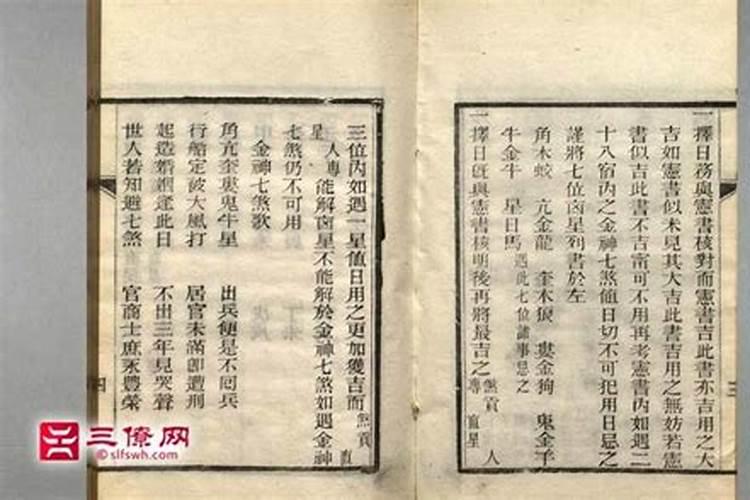 一擇日務與憲書核對而憲書吉此書亦吉用之大
吉如憲書似未見其大吉此書吉用之無妨若憲
書似吉此書不吉甯可不用再考憲書內如遇二
十八宿內之金神七煞值日切不可犯用日忌之
謹將七位凶星列書於左
角木蛟 亢金龍 奎木狼 婁金狗 鬼金羊
牛金牛 星日馬 遇此七位諸事忌之
一擇日旣與憲書核明後再將最吉之 煞貢 專 直星 人
三位內如遇一星值日用之更加獲吉而 煞貢 直
星 人專 能解凶星不能解於金神七煞如遇金神
七煞仍不可用
金神七煞歌
角亢奎婁鬼牛星 出兵便是不囘兵
行船定被大風打 居官未滿卽遭刑
起造婚姻逢此日 不出三年見哭聲
世人若知避七煞 官商士庶永豐榮
三
四
三僚网
©slfswh.com